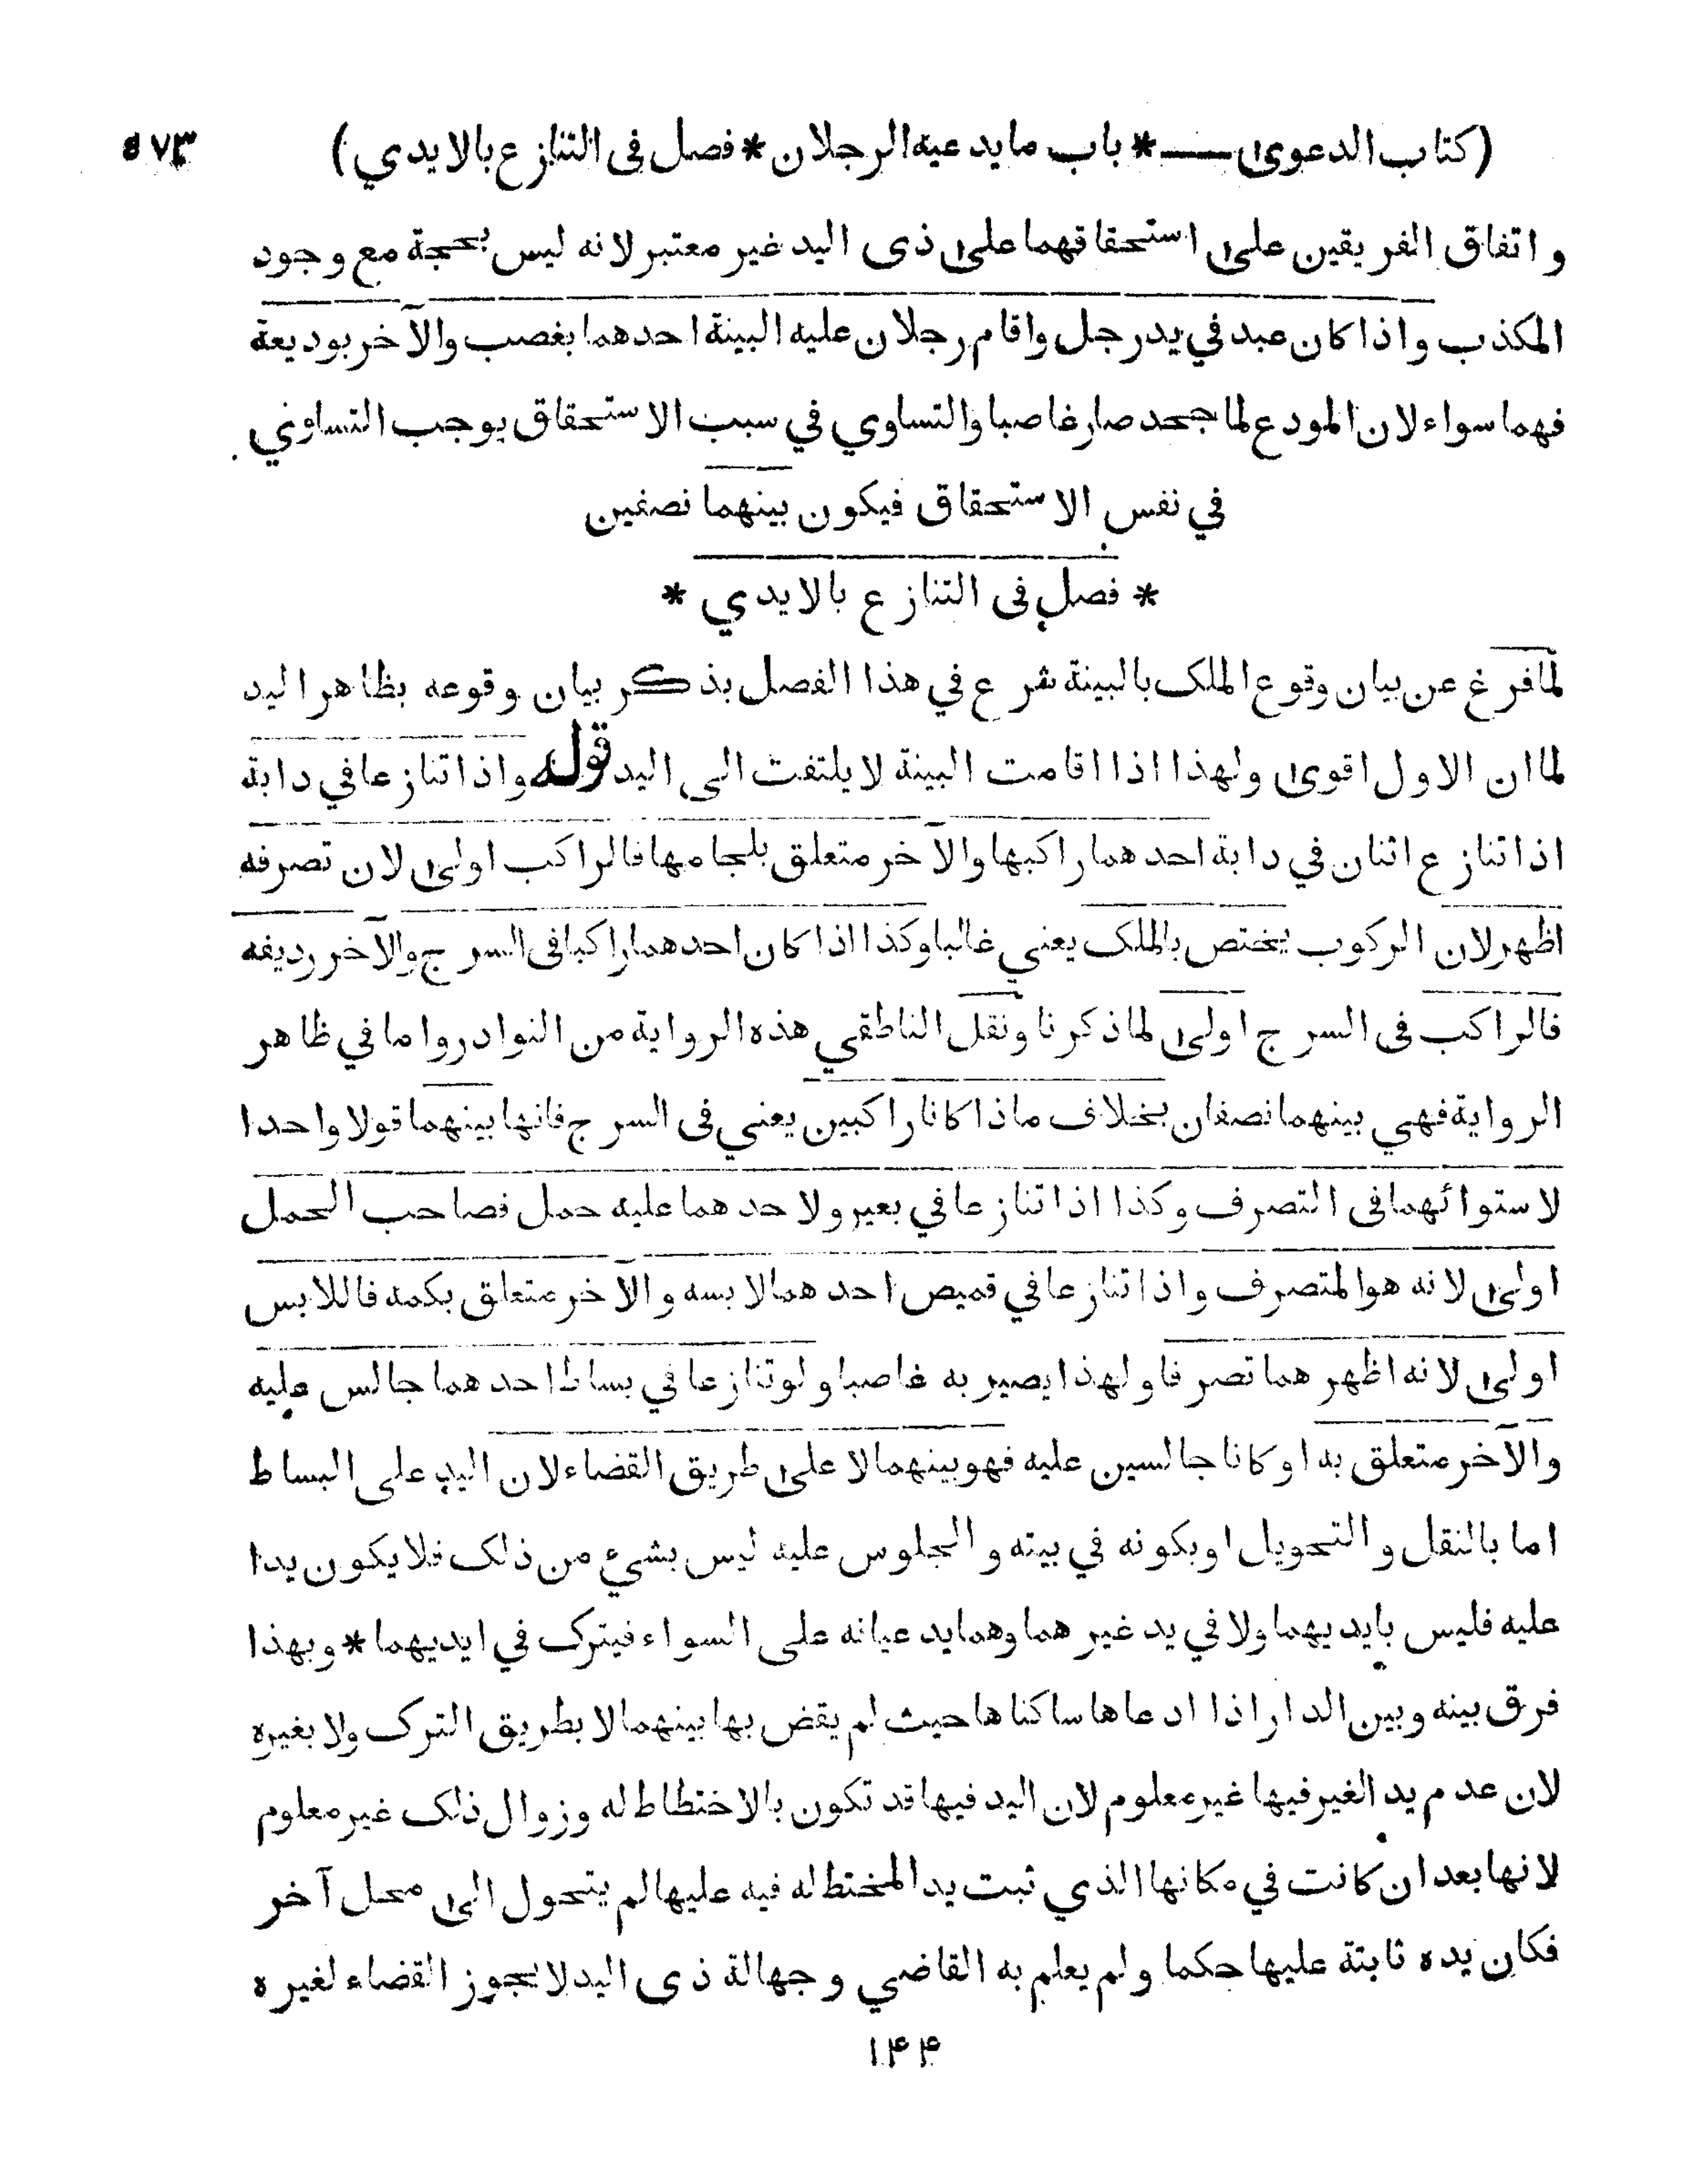 (كتاب الدعوى — * باب ما يدعيه الرجلان * فصل فى التنازع بالايدي) ٥٧٣
و اتفاق الفريقين على استحقاقهما على ذى اليد غير معتبر لانه ليس بحجة مع وجود
المكذب واذا كان عبد في يد رجل واقام رجلان عليه البينة احدهما بغصب والآخر بوديعة
فهما سواء لان المودع لما جحد صار غاصبا والتساوي في سبب الاستحقاق يوجب التساوي
في نفس الاستحقاق فيكون بينهما نصفين
* فصل فى التنازع بالايدي *
لما فرغ عن بيان وقوع الملك بالبينة شرع في هذا الفصل بذكر بيان وقوعه بظاهر اليد
لما ان الاول اقوى ولهذا اذا اقامت البينة لا يلتفت الى اليد قوله واذا تنازعا في دابة
اذا تنازع اثنان في دابة احدهما راكبها والآخر متعلق بلجامها فالراكب اولى لان تصرفه
اظهر لان الركوب يختص بالملك يعني غالبا وكذا اذا كان احدهما راكبا فى السرج والآخر رديفه
فالراكب فى السرج اولى لما ذكرنا ونقل الناطقي هذه الرواية من النوادر واما في ظاهر
الرواية فهي بينهما نصفان بخلاف ماذا كانا راكبين يعني فى السرج فانها بينهما قولا واحدا
لاستوائهما فى التصرف وكذا اذا تنازعا في بعير ولاحدهما عليه حمل فصاحب الحمل
اولى لانه هو المتصرف واذا تنازعا في قميص احدهما لابسه والآخر متعلق بكمه فاللابس
اولى لانه اظهرهما تصرفا ولهذا يصير به غاصبا ولو تنازعا في بساط احدهما جالس عليه
والآخر متعلق به او كانا جالسين عليه فهو بينهما لا على طريق القضاء لان اليد على البساط
اما بالنقل و التحويل او بكونه في بيته و الجلوس عليه ليس بشيء من ذلك فلا يكون يدا
عليه فليس بايديهما ولا في يد غيرهما وهما يدعيانه على السواء فيترك في ايديهما * وبهذا
فرق بينه وبين الدار اذا ادعاها ساكناها حيث لم يقض بها بينهما لا بطريق الترك ولا بغيره
لان عدم يد الغير فيها غير معلوم لان اليد فيها قد تكون بالاختطاط له وزوال ذلك غير معلوم
لانها بعد ان كانت في مكانها الذي ثبت يد المختط له فيه عليها لم يتحول الى محل آخر
فكان يده ثابتة عليها حكما ولم يعلم به القاضي وجهالة ذى اليد لا يجوز القضاء لغيره
١٤٤